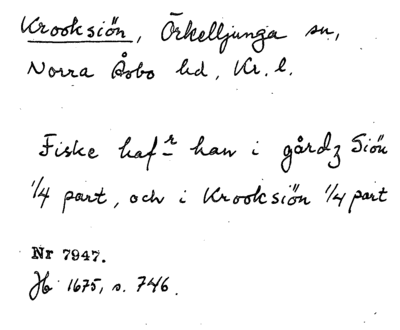 Krooksiön, Örkelljunga sn,
Norra Åsbo hd, Kr. l.
Fiske hafr han i gårdz Siön
1/4 part, och i Krooksiön 1/4 part
Nr 7947.
Jb 1675, s. 746.